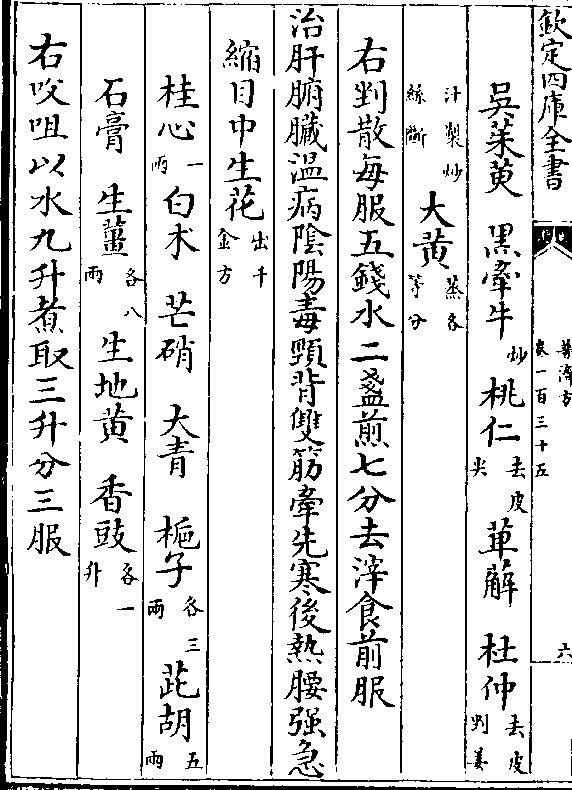 欽定四庫全書
普濟方 卷一百三十五
六
吳茱萸 黑牽牛炒 桃仁去皮尖 萆薢 杜仲去皮剉姜
汁製炒絲斷 大黃蒸各等分
右剉散每服五錢水二盞煎七分去滓食前服
治肝腑臟溫病陰陽毒頸背雙筋牽先寒後熱腰强急
縮目中生花出千金方
桂心一兩 白术 芒硝 大青 梔子各三兩 茈胡五兩
石膏 生薑各八兩 生地黃 香豉各一升
右㕮咀以水九升煮取三升分三服